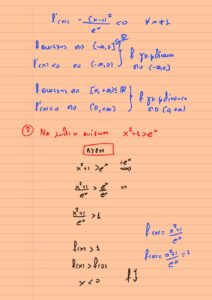 f'(x) = -(x-1)²/eˣ < 0 ∀ x ≠ 1
f συνεχης στο (-∞,0]
f'(x) < 0 στο (-∞,0)
f γν. φθίνουσα
στο (-∞,0]
f συνεχης στο [0,+∞)
f'(x) < 0 στο (0,+∞)
f γν. φθίνουσα
στο [0,+∞)
② Να λυθεί η ανίσωση x²+1 > eˣ
ΛΥΣΗ
x²+1 > eˣ
(x²+1)/eˣ > eˣ/eˣ ⇒
(x²+1)/eˣ > 1
f(x) = (x²+1)/eˣ
f(x) > 1
f(0) = (0²+1)/e⁰ = 1
f(x) > f(0)
x < 0 f↓